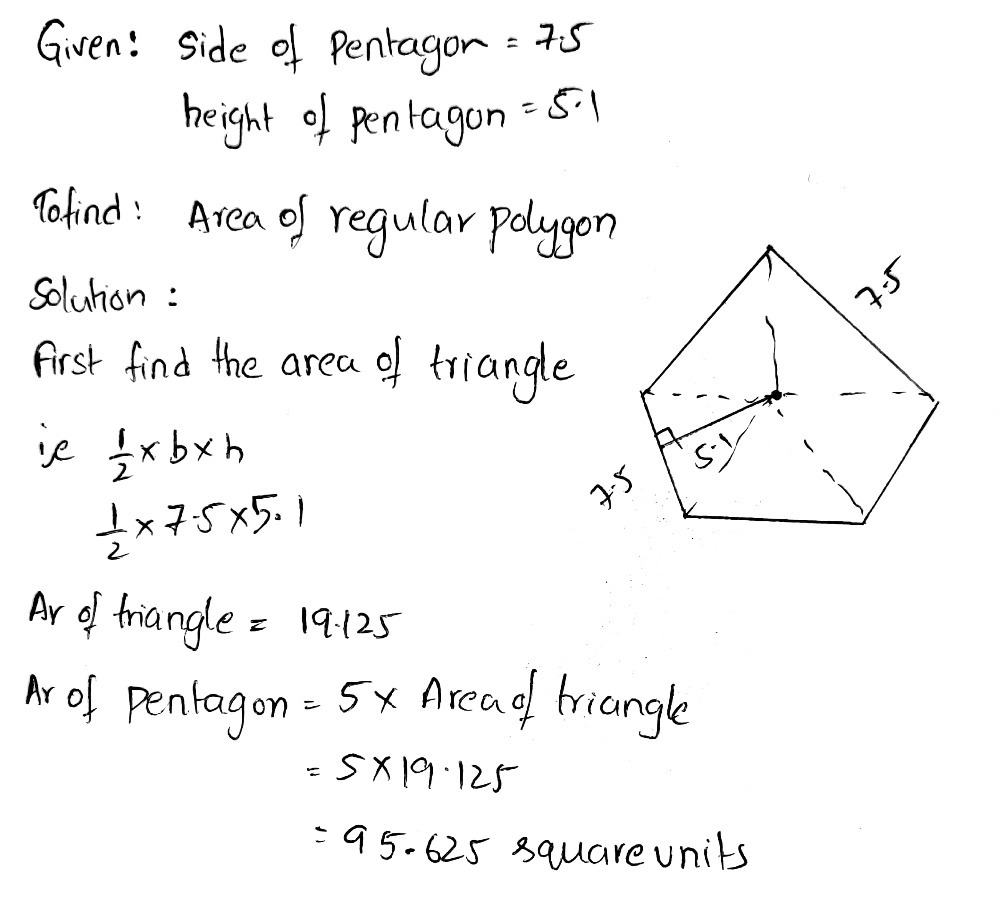 Given: Side of Pentagon = 7.5
height of pentagon = 5.1
Tofind: Area of regular polygon
Solution :
First find the area of triangle
i.e 1/2 × b × h
1/2 × 7.5 × 5.1
Ar of triangle = 19.125
Ar of pentagon = 5 × Area of triangle
= 5 × 19.125
= 95.625 square units
7.5
5.1
7.5